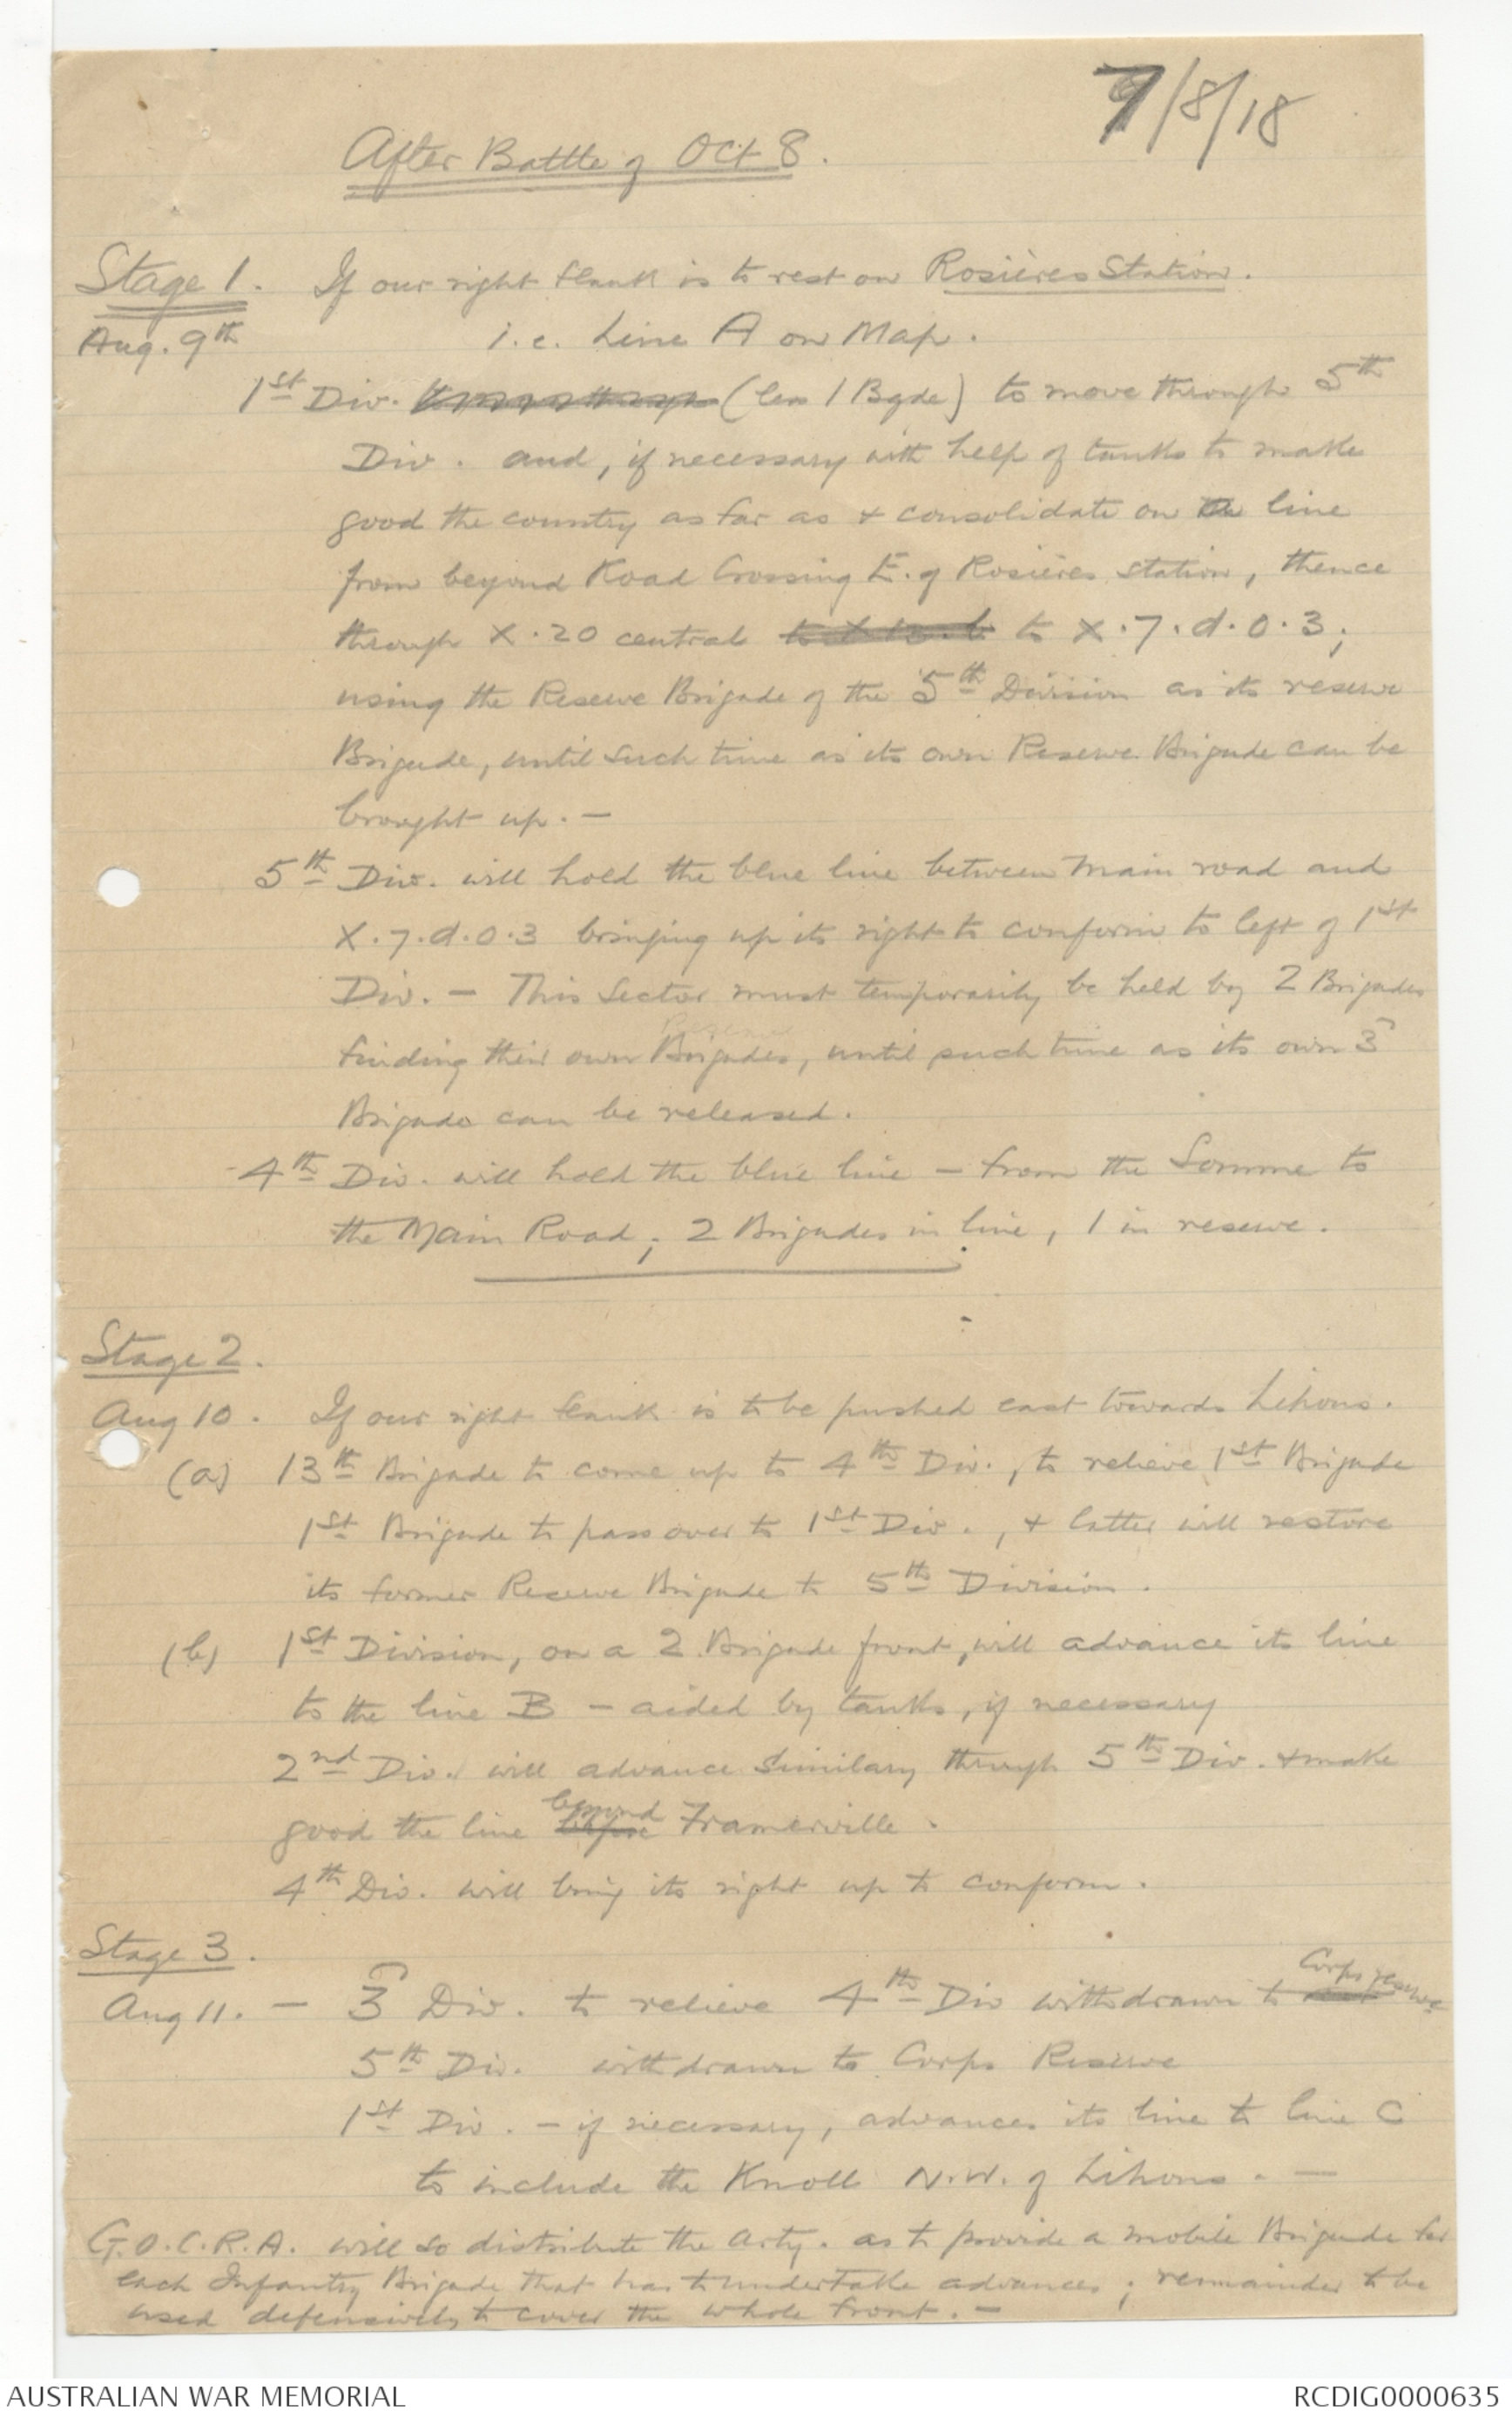 7/8/18
After Battle of Oct 8.
Stage 1. If our right flank is to rest on Rosières Station.
Aug. 9th i.e. Line A on Map.
1st Div. (less 1 Bgde) to move through 5th
Div. and, if necessary with help of tanks to make
good the country as far as & consolidate on the line
from beyond Road Crossing E. of Rosières station, thence
through X.20 central to X.7.d.0.3;
using the Reserve Brigade of the 5th Division as its reserve
Brigade, until such time as its own Reserve Brigade can be
brought up. —
5th Div. will hold the blue line between main road and
X.7.d.0.3 bringing up its right to conform to left of 1st
Div. — This Sector must temporarily be held by 2 Brigades
Reserve
finding their own Brigades, until such time as its own 3
Brigade can be released.
4th Div. will hold the blue line — from the Somme to
the Main Road; 2 Brigades in line, 1 in reserve.
Stage 2.
Aug 10. If our right flank is to be pushed east towards Lihons.
(a) 13th Brigade to come up to 4th Div., to relieve 1st Brigade
1st Brigade to pass over to 1st Div., & latter will restore
its former Reserve Brigade to 5th Division.
(b) 1st Division, on a 2 Brigade front, will advance its line
to the line B — aided by tanks, if necessary
2nd Div. will advance similary through 5th Div. & make
beyond
good the line before Framerville.
4th Div. will bring its right up to conform.
Stage 3.
Corps reserve
Aug 11. — 3 Div. to relieve 4th Div withdrawn to
5th Div. withdrawn to Corps Reserve
1st Div. — if necessary, advances its line to line C
to include the Knoll N.W. of Lihons. —
G.O.C.R.A. will so distribute the arty. as to provide a mobile Brigade for
each Infantry Brigade that has to undertake advances; remainder to be
used defensively to cover the whole front. —
AUSTRALIAN WAR MEMORIAL
RCDIG0000635